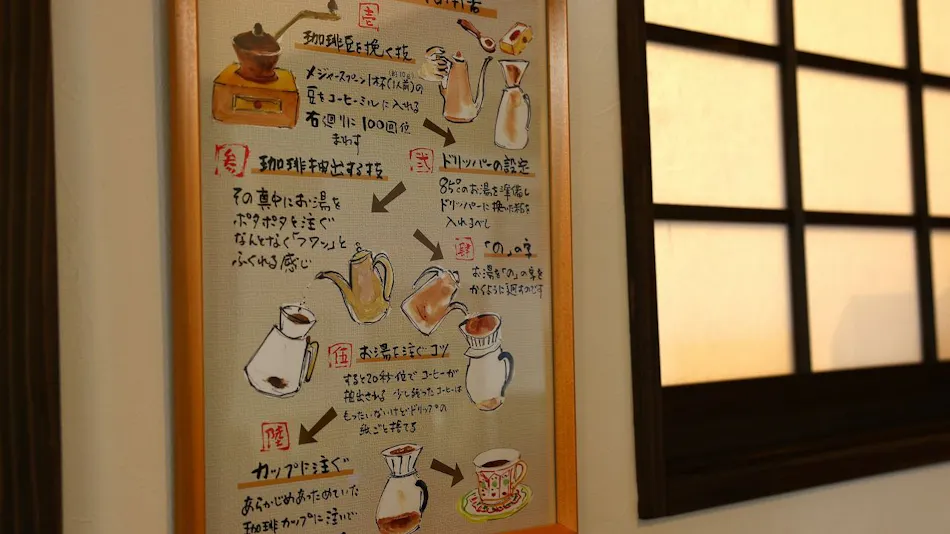 壱
珈琲豆を挽く技
メジャースプーン1杯(1人前)の
(約10g)
豆をコーヒーミルに入れる
右廻りに100回位
まわす
弐
ドリッパーの設定
85℃のお湯を準備し
ドリッパーに挽いた粉を
入れるべし
参
珈琲抽出する技
その真中にお湯を
ポタポタを注ぐ
なんとなく「フワン」と
ふくれる感じ
肆
「の」の字
お湯を「の」の字を
かくように廻すのです
伍
お湯を注ぐコツ
すると20秒位でコーヒーが
抽出される 少し残ったコーヒーは
もったいないけどドリップの
紙ごと捨てる
陸
カップに注ぐ
あらかじめあっためていた
珈琲カップに注いで